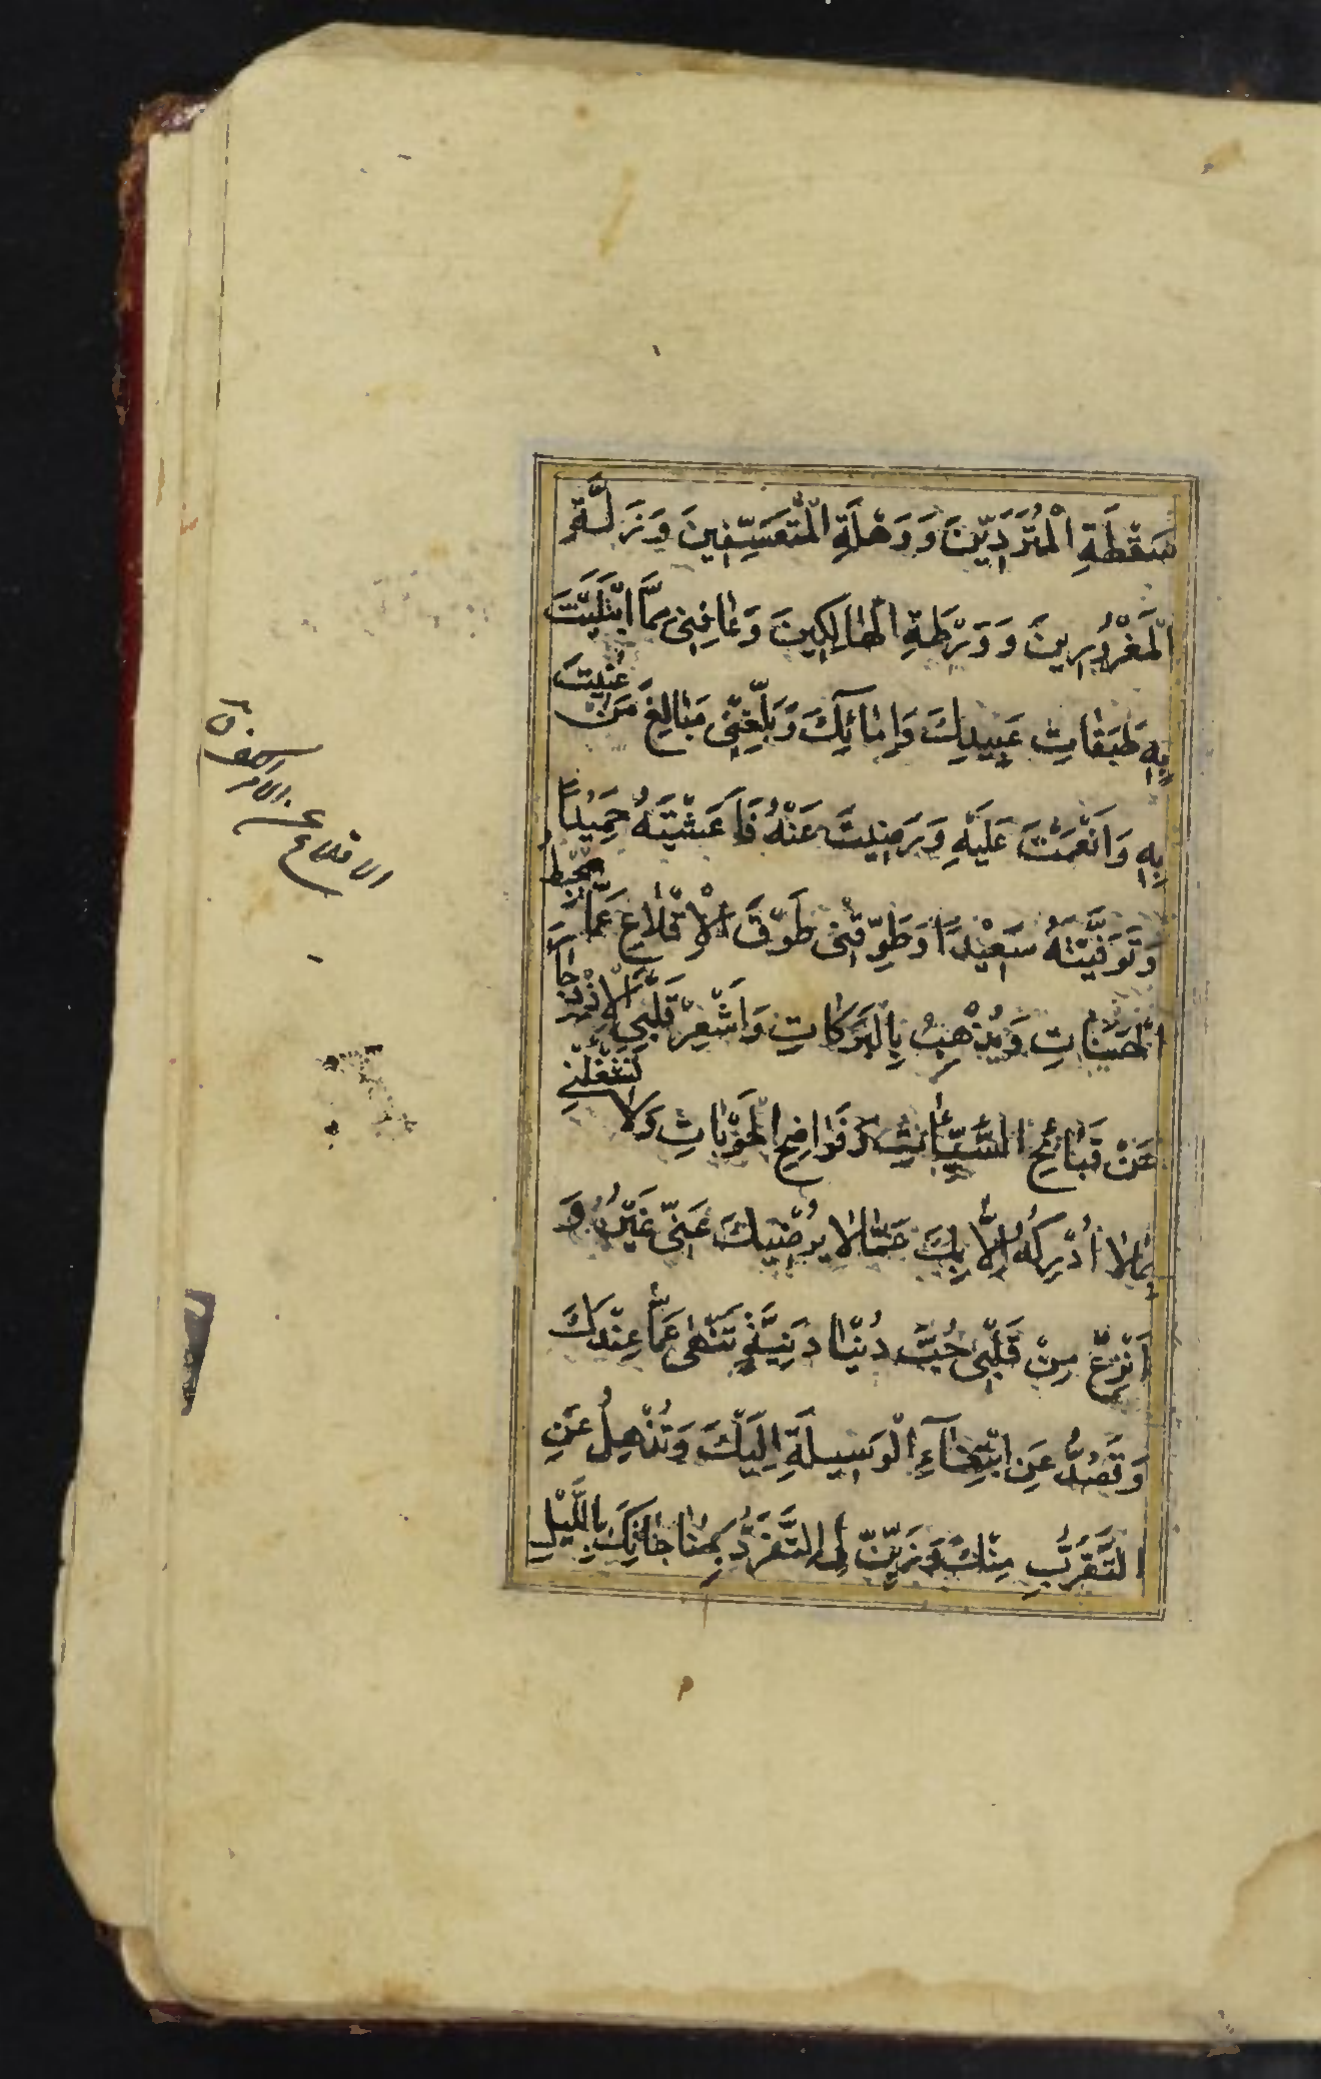 سَقْطَةِ الْمُتَرَدِّيْنَ وَ وَهْلَةِ الْمُتَعَسِّفِينَ وَ زَلَّةِ
الْمَغْرُورِينَ وَ وَرْطَةِ الْهَالِكِينَ وَعَافِنِى مِمَّا ابْتَلَيْتَ
بِهِ طَبَقَاتِ عَبِيدِكَ وَاِمَائِكَ وَبَلِّغْنِى مَبَالِغَ مَنْ عُنِيتَ
بِهِ وَاَنْعَمْتَ عَلَيْهِ وَرَضِيتَ عَنْهُ فَاَعَشْتَهُ حَمِيْدًا
وَتَوَفَّيْتَهُ سَعِيْدًا وَطَوِّقْنِى طَوْقَ الْاِقْلَاعِ عَمَّا يُحْبِطُ
الْحَسَنَاتِ وَيُذْهِبُ بِالْبَرَكَاتِ وَاَشْعِرْ قَلْبِىَ الْاِزْدِجَارَ
عَنْ قَبَائِحِ السَّيِّئَاتِ وَفَوَاضِحِ الْحَوْبَاتِ وَلَا تَشْغَلْنِى
بِمَا لَا اُدْرِكُهُ اِلَّا بِكَ عَمَّا لَا يُرْضِيكَ عَنِّى غَيْرُهُ وَ
انْزِعْ مِنْ قَلْبِى حُبَّ دُنْيَا دَنِيَّةٍ تَنْهَى عَمَّا عِنْدَكَ
وَتَصُدُّ عَنِ ابْتِغَآءِ الْوَسِيلَةِ اِلَيْكَ وَتُذْهِلُ عَنِ
التَّقَرُّبِ مِنْكَ وَزَيِّنْ لِى التَّفَرُّدَ بِمُنَاجَاتِكَ بِاللَّيْلِ
الاقلاع
عن الامر
الكف